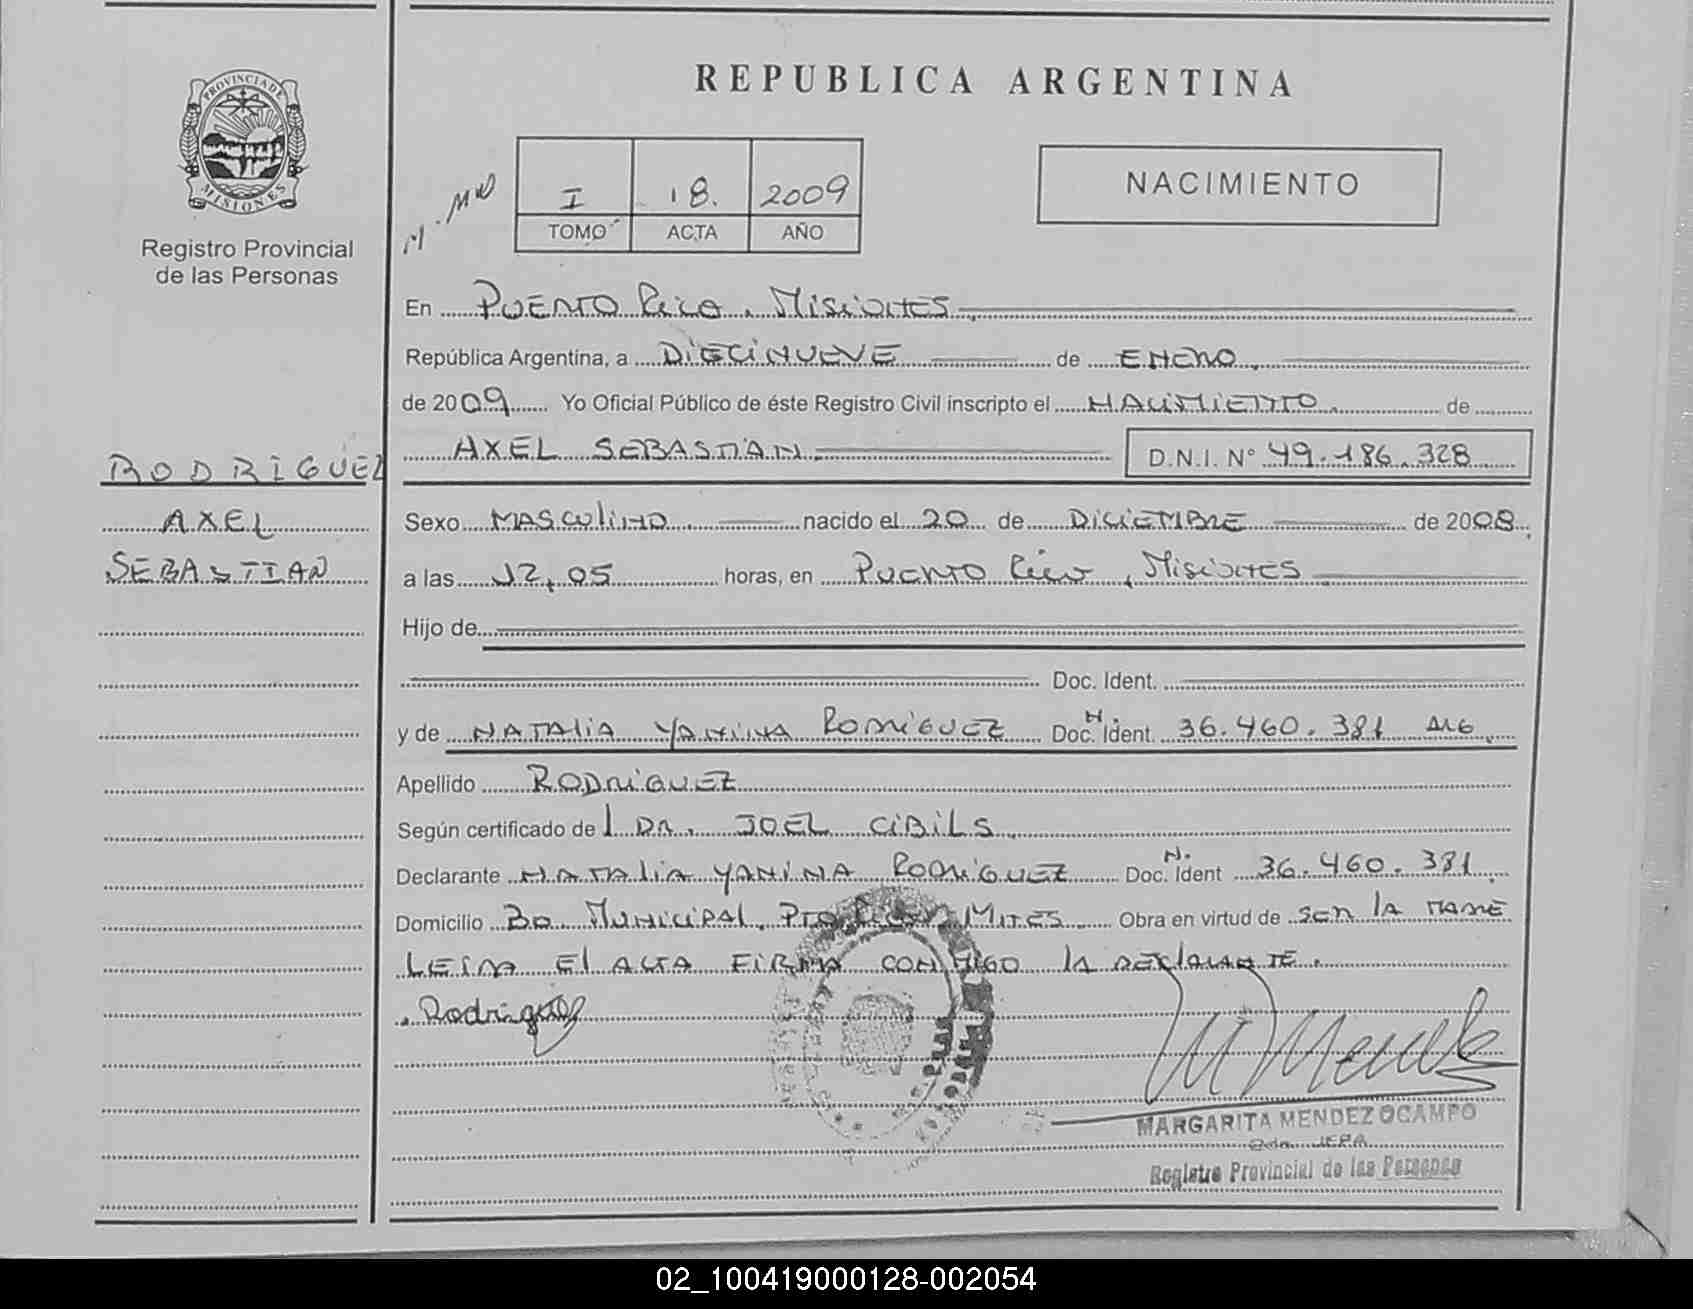 REPUBLICA ARGENTINA
PROVINCIA DE
MISIONES
Registro Provincial
de las Personas
I 18. 2009
TOMO ACTA AÑO
NACIMIENTO
En PUERTO Rico, MISIONES
República Argentina, a DIECINUEVE de ENERO
de 2009 Yo Oficial Público de éste Registro Civil inscripto el NACIMIENTO de
AXEL SEBASTIAN D.N.I. N° 49.186.328
RODRIGUEZ
AXEL
SEBASTIAN
Sexo MASCULINO nacido el 20 de DICIEMBRE de 2008
a las 12,05 horas, en PUERTO Rico, MISIONES
Hijo de
Doc. Ident.
y de NATALIA YANINA RODRIGUEZ Doc. N. Ident. 36.460.381
Apellido RODRIGUEZ
Según certificado de l DR. JOEL CIBILS
Declarante NATALIA YANINA RODRIGUEZ Doc. N. Ident 36.460.381
Domicilio Bo MUNICIPAL, PTO Rico, Obra en virtud de SER LA MADRE
LEIDA El ACTA FIRMA CONMIGO lA DECLARANTE.
Rodriguez
MARGARITA MENDEZ OCAMPO
JEFA
Registro Provincial de las Personas
02_100419000128-002054